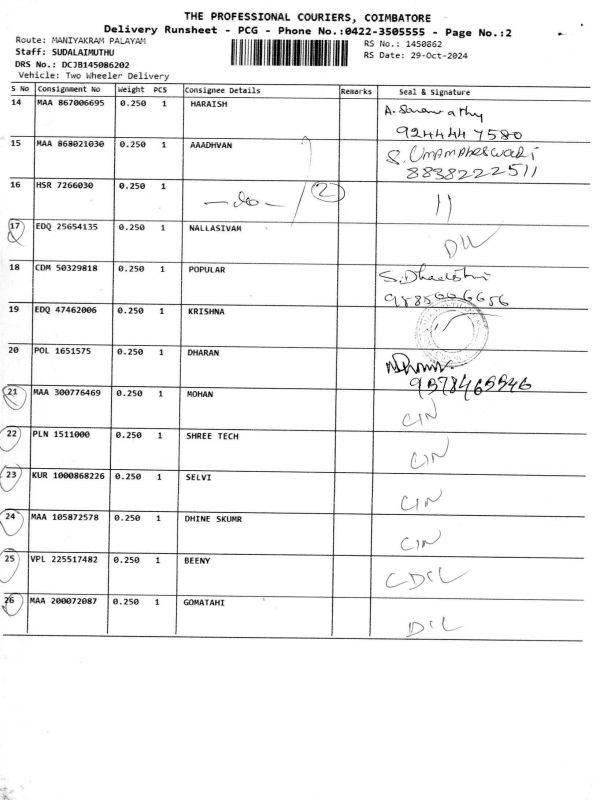 THE PROFESSIONAL COURIERS, COIMBATORE
Delivery Runsheet - PCG - Phone No.:0422-3505555 - Page No.:2
Route: MANIYAKRAM PALAYAM
RS No.: 1450862
Staff: SUDALAIMUTHU
RS Date: 29-Oct-2024
DRS No.: DCJB145086202
Vehicle: Two Wheeler Delivery
S No Consignment No Weight PCS Consignee Details Remarks Seal & Signature
14 MAA 867006695 0.250 1 HARAISH
9244447580
15 MAA 868021030 0.250 1 AAADHVAN S. UMAMAHESWARI
8838222511
16 HSR 7266030 0.250 1 -do- 2 11
17 EDQ 25654135 0.250 1 NALLASIVAM
18 CDM 50329818 0.250 1 POPULAR
19 EDQ 47462006 0.250 1 KRISHNA
20 POL 1651575 0.250 1 DHARAN
21 MAA 300776469 0.250 1 MOHAN CIN
22 PLN 1511000 0.250 1 SHREE TECH CIN
23 KUR 1000868226 0.250 1 SELVI CIN
24 MAA 105872578 0.250 1 DHINE SKUMR CIN
25 VPL 225517482 0.250 1 BEENY
26 MAA 200072087 0.250 1 GOMATAHI DIL